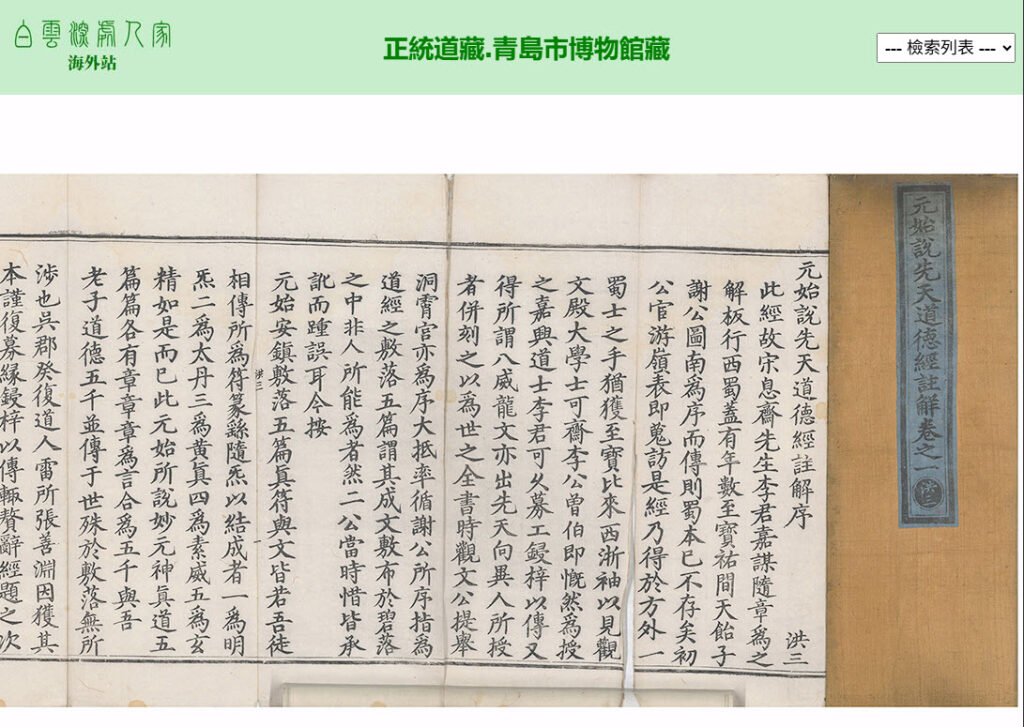 白雲深處人家
海外站
正統道藏.青島市博物館藏
--- 檢索列表 ---
元始說先天道德經註解卷之一
元始說先天道德經註解序
洪三
此經故宋息齋先生李君嘉謀隨章爲之
解板行西蜀蓋有年數至寶祐間天飴子
謝公圖南爲序而傳則蜀本已不存矣初
公官游嶺表即蒐訪是經乃得於方外一
蜀士之手猶獲至寶比來西浙袖以見觀
文殿大學士可齋李公曾伯即慨然爲授
之嘉興道士李君可久募工鋟梓以傳又
得所謂八威龍文亦出先天向異人所授
者併刻之以爲世之全書時觀文公提舉
洞霄宮亦爲序大抵率循謝公所序指爲
道經之敷落五篇謂其成文敷布於碧落
之中非人所能爲者然二公當時惜皆承
訛而踵誤耳今按
元始安鎮敷落五篇眞符與文皆若吾徒
洪三
相傳所爲符篆繇隨炁以結成者一爲明
炁二爲太丹三爲黃眞四爲素威五爲玄
精如是而已此元始所說妙元神眞道五
篇篇各有章章章爲言合爲五千與吾
老子道德五千並傳于世殊於敷落無所
涉也吳郡癸復道人雷所張善淵因獲其
本謹復募緣鋟梓以傳輒贅辭經題之次